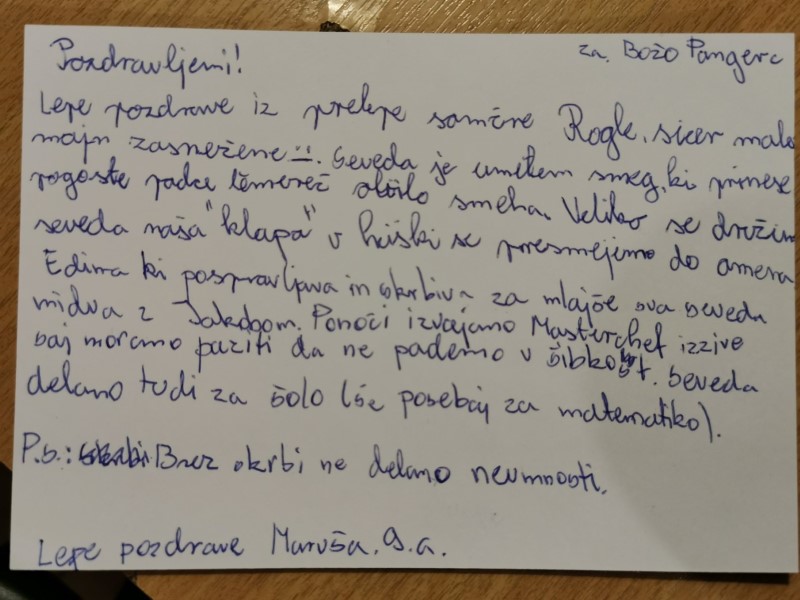 Pozdravljeni!
za. Božo Pangerc
Lepe pozdrave iz prelepe sončne Rogle, sicer malo
manj zasnežene. Seveda je umeten sneg, ki prinese
pogoste padce temveč obilo smeha. Veliko se družimo
seveda naša "klapa" v hiški se presmejemo do onema
Edina ki pospravljava in skrbiva za mlajše sva seveda
midva z Jakobom. Ponoči izvajamo Masterchef izzive
saj moramo paziti da ne pademo v šibkost. Seveda
delamo tudi za šolo (še posebaj za matematiko).
P.s.: Brez skrbi ne delamo neumnosti.
Lepe pozdrave Maruša, 9.a.